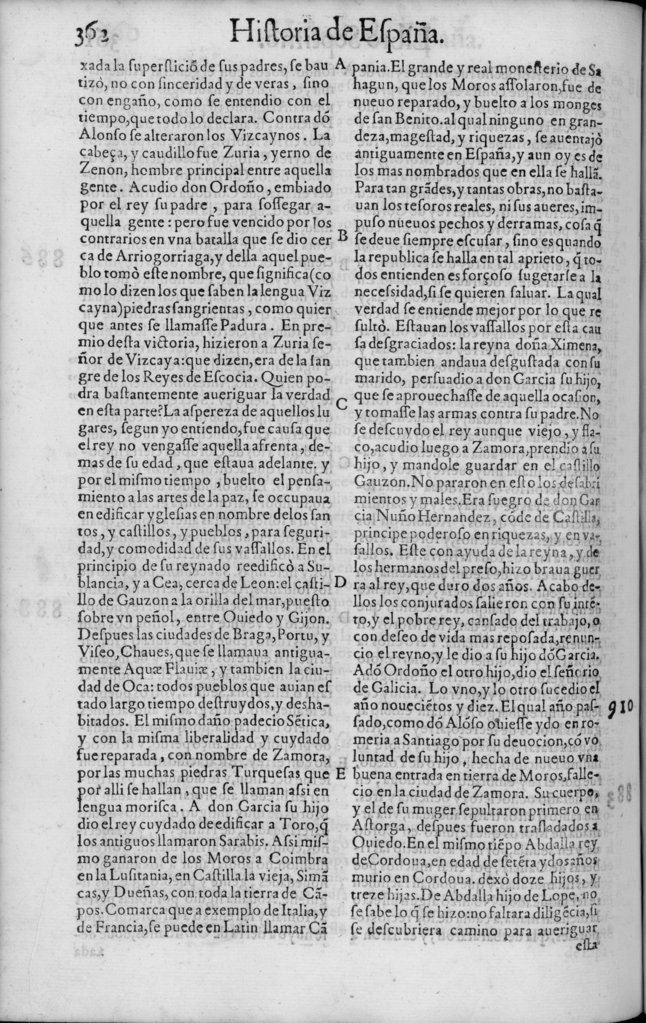 362 Historia de España.
xada la superstició de sus padres, se bau
tizò, no con sinceridad y de veras, sino
con engaño, como se entendio con el
tiempo, que todo lo declara. Contra dõ
Alonso se alteraron los Vizcaynos. La
cabeça, y caudillo fue Zuria, yerno de
Zenon, hombre principal entre aquella
gente. Acudio don Ordoño, embiado
por el rey su padre, para sossegar a-
quella gente: pero fue vencido por los
contrarios en vna batalla que se dio cer
ca de Arriogorriaga, y della aquel pue-
blo tomò este nombre, que significa (co
mo lo dizen los que saben la lengua Viz
cayna) piedras sangrientas, como quier
que antes se llamasse Padura. En pre-
mio desta victoria, hizieron a Zuria se-
ñor de Vizcaya: que dizen, era de la san
gre de los Reyes de Escocia. Quien po-
dra bastantemente aueriguar la verdad
en esta parte? La aspereza de aquellos lu
gares, segun yo entiendo, fue causa que
el rey no vengasse aquella afrenta, de-
mas de su edad, que estaua adelante. y
por el mismo tiempo, buelto el pensa-
miento a las artes de la paz, se occupaua
en edificar yglesias en nombre de los san
tos, y castillos, y pueblos, para seguri-
dad, y comodidad de sus vassallos. En el
principio de su reynado reedificò a Su-
blancia, y a Cea, cerca de Leon: el casti-
llo de Gauzon a la orilla del mar, puesto
sobre vn peñol, entre Ouiedo y Gijon.
Despues las ciudades de Braga, Portu, y
Viseo, Chaues, que se llamaua antigua-
mente Aquæ Flauiæ, y tambien la ciu-
dad de Oca: todos pueblos que auian es
tado largo tiempo destruydos, y desha-
bitados. El mismo daño padecio Sẽtica,
y con la misma liberalidad y cuydado
fue reparada, con nombre de Zamora,
por las muchas piedras Turquesas que
por alli se hallan, que se llaman assi en
lengua morisca. A don Garcia su hijo
dio el rey cuydado de edificar a Toro, q̃
los antiguos llamaron Sarabis. Assi mis-
mo ganaron de los Moros a Coimbra
en la Lusitania, en Castilla la vieja, Simã
cas, y Dueñas, con toda la tierra de Cã-
pos. Comarca que a exemplo de Italia, y
de Francia, se puede en Latin llamar Cã
A
B
C
D
E
pania. El grande y real monesterio de Sa
hagun, que los Moros assolaron, fue de
nueuo reparado, y buelto a los monges
de san Benito. al qual ninguno en gran-
deza, magestad, y riquezas, se auentajò
antiguamente en España, y aun oy es de
los mas nombrados que en ella se hallã.
Para tan grãdes, y tantas obras, no basta-
uan los tesoros reales, ni sus aueres, im-
puso nueuos pechos y derramas, cosa q̃
se deue siempre escusar, sino es quando
la republica se halla en tal aprieto, q̃ to-
dos entienden es forçoso sugetarse a la
necessidad, si se quieren saluar. La qual
verdad se entiende mejor por lo que re
sultò. Estauan los vassallos por esta cau
sa desgraciados: la reyna doña Ximena,
que tambien andaua desgustada con su
marido, persuadio a don Garcia su hijo,
que se aprouechasse de aquella ocasion,
y tomasse las armas contra su padre. No
se descuydo el rey aunque viejo, y fla-
co, acudio luego a Zamora, prendio a su
hijo, y mandole guardar en el castillo
Gauzon. No pararon en esto los desabri
mientos y males. Era suegro de don Gar
cia Nuño Hernandez, cõde de Castilla,
principe poderoso en riquezas, y en va-
sallos. Este con ayuda de la reyna, y de
los hermanos del preso, hizo braua guer
ra al rey, que duro dos años. Acabo de-
llos los conjurados salieron con su inte-
to, y el pobre rey, cansado del trabajo, o
con deseo de vida mas reposada, renun-
cio el reyno, y le dio a su hijo dõ Garcia.
Adõ Ordoño el otro hijo, dio el señorio
de Galicia. Lo vno, y lo otro sucedio el
año nouecientos y diez. El qual año pas-
sado, como dõ Alõso ouiesse ydo en ro-
meria a Santiago por su deuocion, cõ vo
luntad de su hijo, hecha de nueuo vna
buena entrada en tierra de Moros, falle-
cio en la ciudad de Zamora. Su cuerpo,
y el de su muger sepultaron primero en
Astorga, despues fueron trasladados a
Ouiedo. En el mismo tiẽpo Abdalla rey
de Cordoua, en edad de setẽta y dos años
murio en Cordoua. dexò doze hijos, y
treze hijas. De Abdalla hijo de Lope, no
se sabe lo q̃ se hizo: no faltara diligẽcia, si
se descubriera camino para aueriguar
esta
910